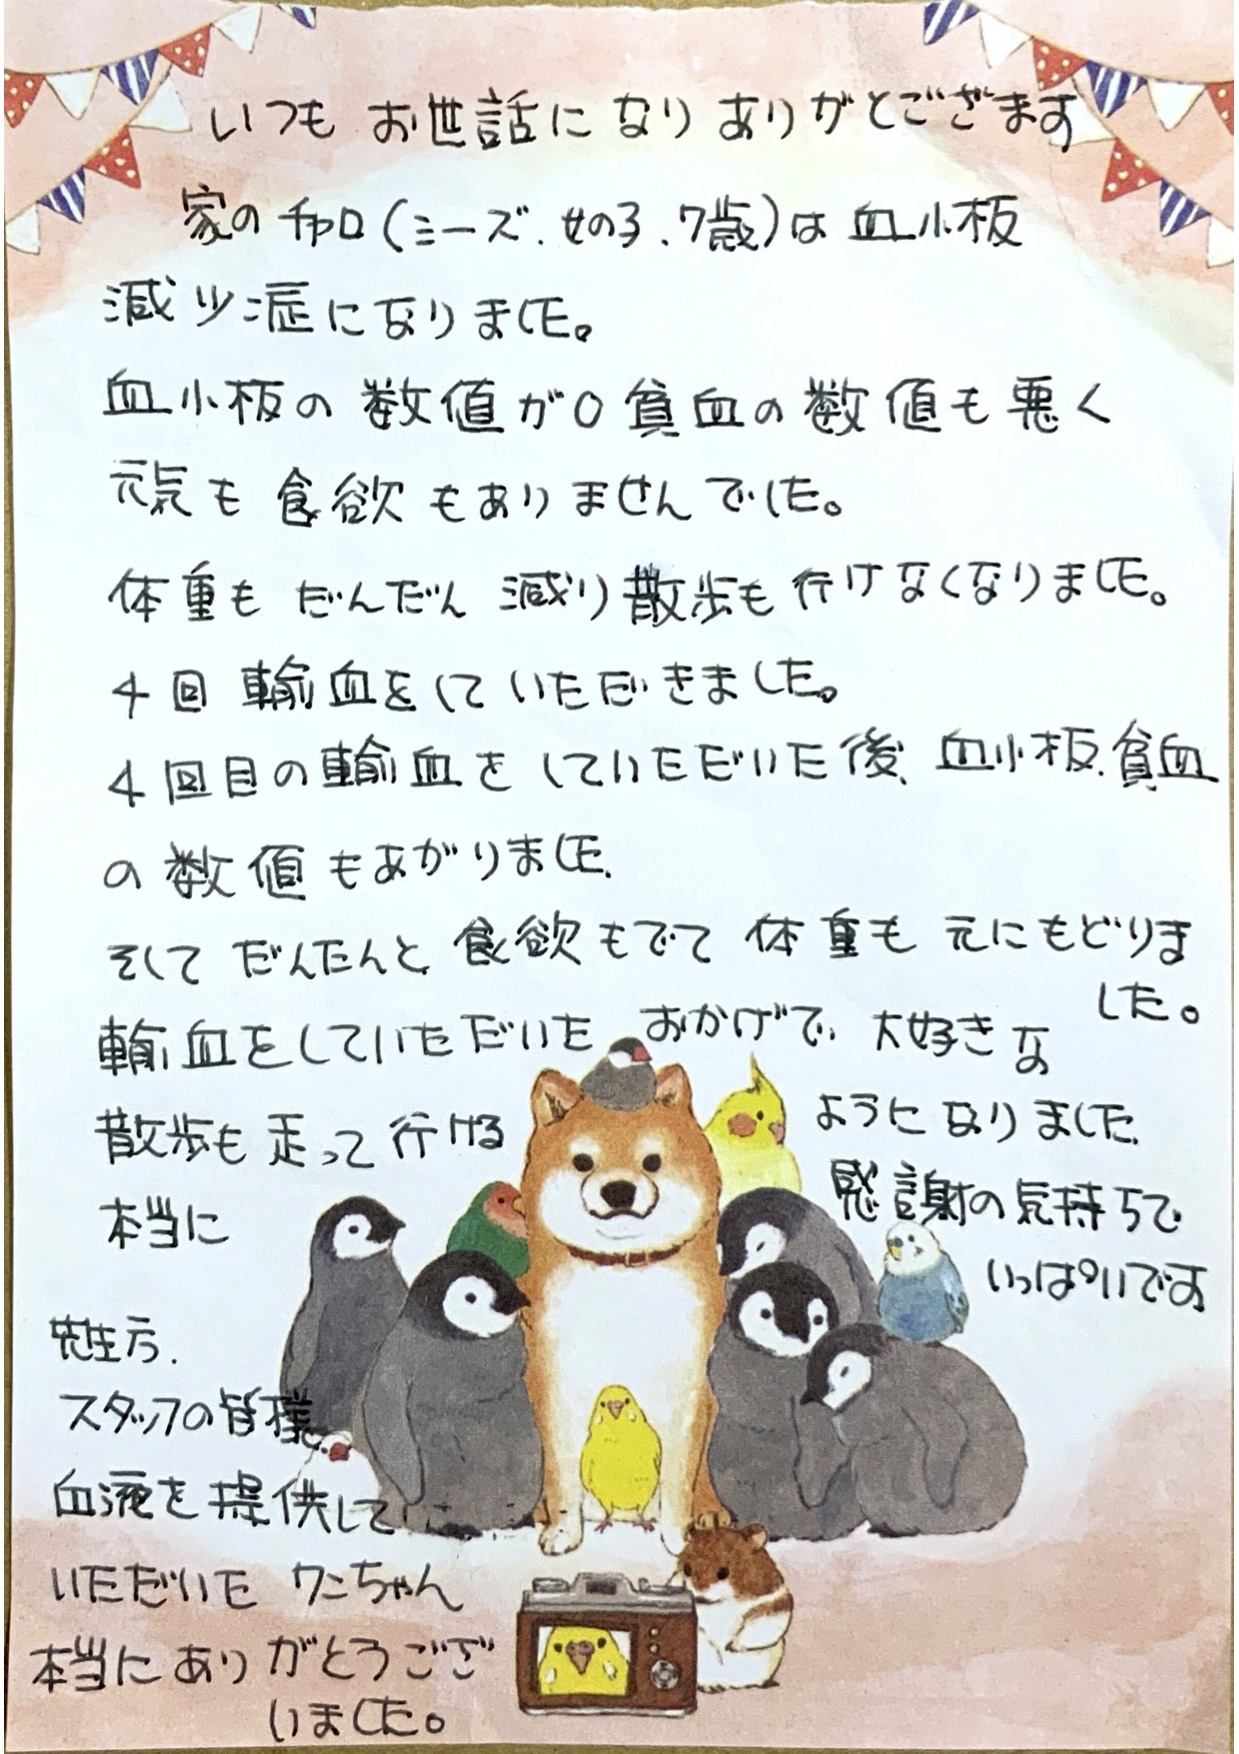 いつも お世話になり ありがとございます
家の チャロ(ミニーズ、女の子、7歳)は 血小板
減少症になりました。
血小板の 数値が0 貧血の数値も悪く
元気も 食欲もありませんでした。
体重も だんだん 減り 散歩も 行けなくなりました。
4回 輸血をして いただきました。
4回目の輸血を していただいた後、血小板、貧血
の 数値もあがりました、
そして だんだんと 食欲もでて 体重も 元にもどりま
した。
輸血をしていただいた おかげで、大好きな
散歩も 走って 行ける ように なりました、
本当に 感謝の気持ちで
いっぱいです
先生方、
スタッフの皆様、
血液を 提供して
いただいた ワンちゃん
本当にありがとうござ
いました。